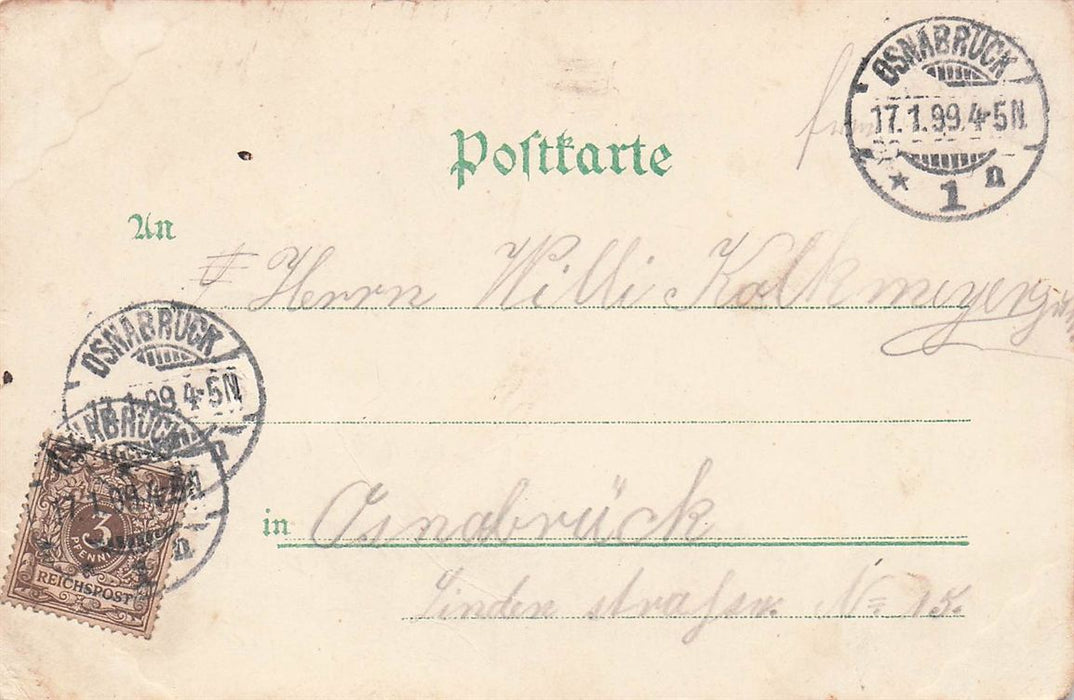 OSNABRÜCK
17.1.99.4-5N.
* 1 n
Postkarte
An
Herrn Willi Kalkmeyer
OSNABRÜCK
17.1.99.4-5N
n
OSNABRÜCK
17.1.99.4-5N
* * 1 n
3
PFENNIG
REICHSPOST
in Osnabrück
Lindenstraße No 15.